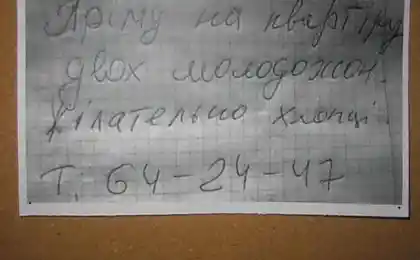 Пріму на квартіру
двох молодожон.
Жілательно хлопці.
Т: 64-24-47